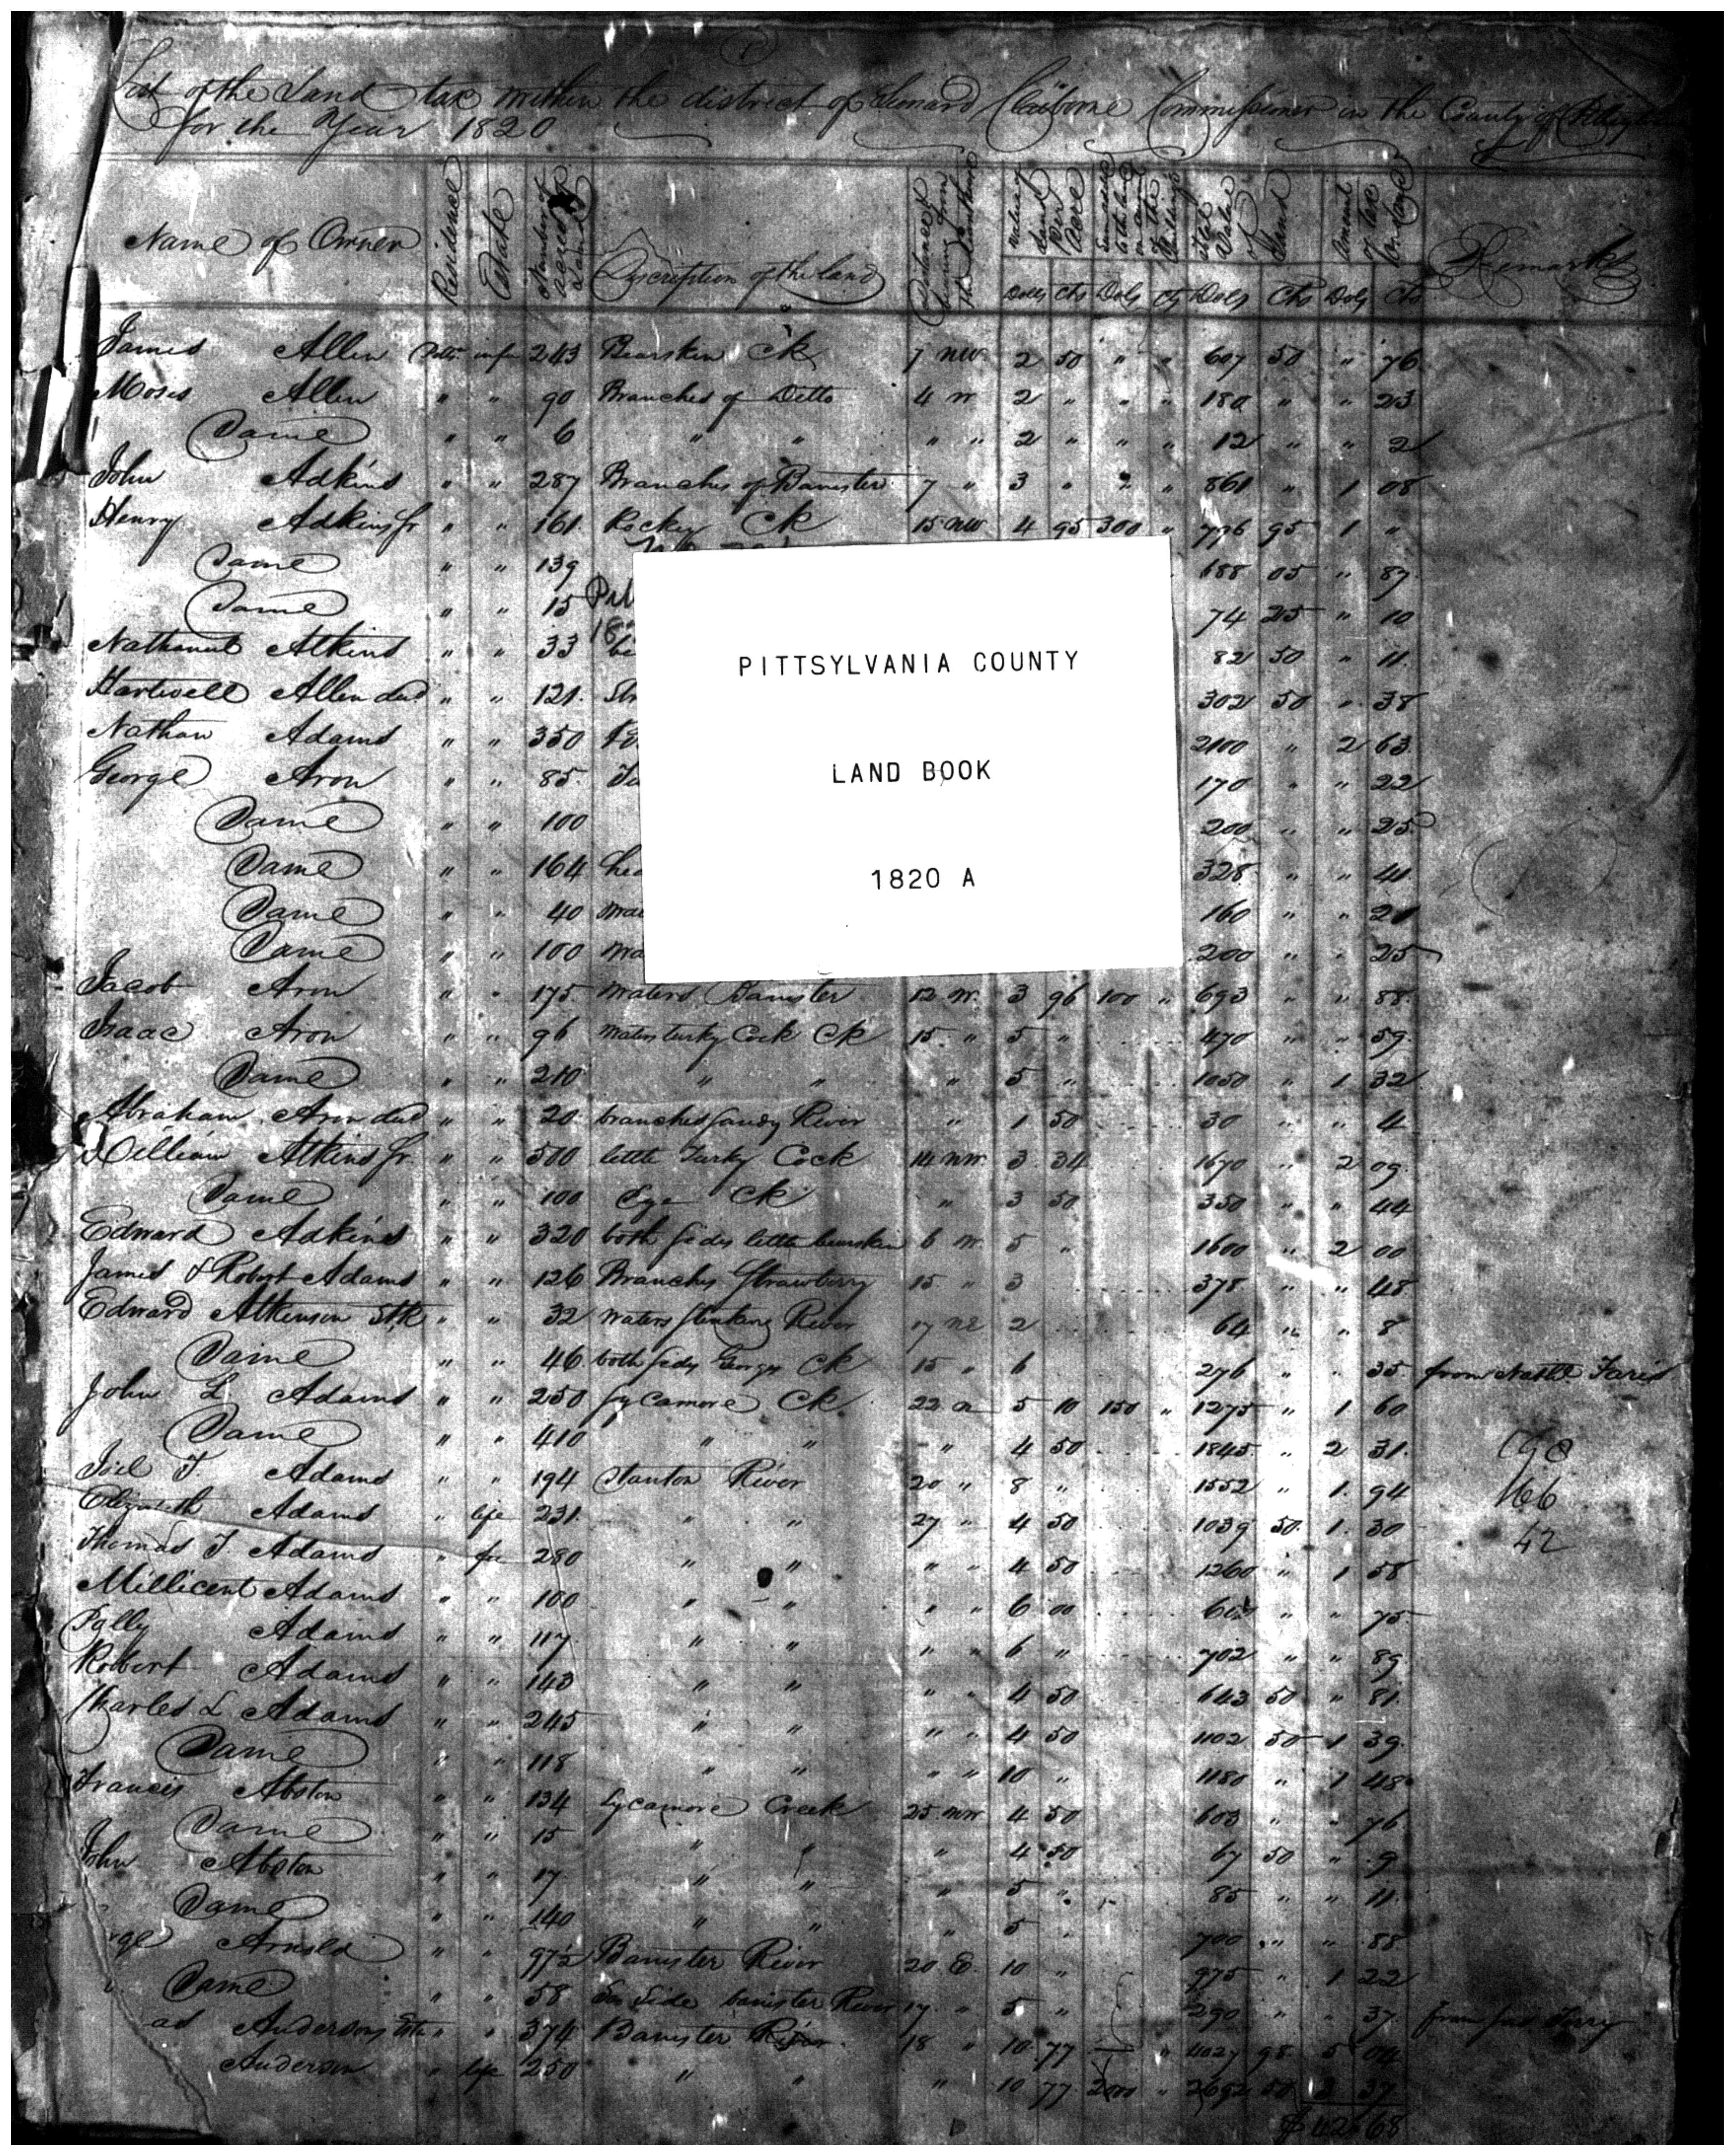 List of the Land tax within the district of Leonard Claiborne Commissioner in the County of
for the Year 1820
Name of Owner Residence Estate Number of acres of Land Description of the land Distance & bearing from the Courthouse Value of Land per Acre Total Value of Land Amount of tax on Land Remarks
Dolls Cts Dols Cts Dols Cts Dols Cts
James Allen 243 Bearskin Ck 7 NW 2 50 " " 607 50 " 76
Moses Allen " " 90 Branches of Ditto 4 W 2 " " " 180 " " 23
Same " " 6 " " " " 2 " " " 12 " " 2
John Adkins " " 287 Branches of Banister 7 " 3 " " " 861 " 1 08
Henry Adkins Jr " " 161 Rockey Ck 15 NW 4 95 300 " 796 95 1 "
Same " " 139 688 05 " 87
Same " " 15 74 25 " 10
Nathaniel Atkins " " 33 82 50 " 11
Hartwell Allen decd " " 121 302 50 " 38
Nathan Adams " " 350 2100 " 2 63
George Aron " " 85 170 " " 22
Same " " 100 200 " " 25
Same " " 164 328 " " 41
Same " " 40 160 " " 21
Same " " 100 200 " " 25
PITTSYLVANIA COUNTY
LAND BOOK
1820 A
Jacob Aron " " 175 Waters Banister 12 W 3 96 100 " 693 " " 88
Isaac Aron " " 96 Waters turky Cock Ck 15 " 5 " 470 " " 59
Same " " 210 " " " 5 " 1050 " 1 32
Abraham Aron decd " " 20 branches sandy River " 1 50 30 " " 4
William Atkins Jr " " 500 little Turky Cock 14 NW 3 34 1670 " 2 09
Same " " 100 Ck " 3 50 350 " " 44
Edward Adkins " " 320 both sides little bearskin 6 W 5 " 1600 " 2 00
James & Robert Adams " " 126 Branches Strawberry 15 " 3 378 " " 48
Edward Atkinson " " 32 Waters Stinking River 17 NE 2 64 " " 8
Same " " 46 both sides Georges Ck 15 " 6 276 " " 35 from Nathl Faris
John L Adams " " 250 Sycamore Ck 22 5 10 150 " 1275 " 1 60
Same " " 410 " " " 4 50 1845 " 2 31
Joel T. Adams " " 194 Stanton River 20 " 8 " 1552 " 1 94 166
Elizabeth Adams " life 231 " " 27 " 4 50 1039 50 1 30 42
Thomas T Adams " fee 280 " " " " 4 50 1260 " 1 58
Millicent Adams " " 100 " " " " 6 00 600 " " 75
Polly Adams " " 117 " " " " 6 " 702 " " 89
Robert Adams " " 143 " " " " 4 50 643 50 " 81
Charles L Adams " " 245 " " " " 4 50 1102 50 1 39
Same " " 118 " " " " 10 " 1180 " 1 48
Francis Abston " " 134 Sycamore Creek 25 NW 4 50 603 " " 76
Same " " 15 " " " 4 50 67 50 " 9
John Abston " " 17 " " " 5 " 85 " " 11
Same " " 140 " " " 5 " 700 " " 88
Arnold " " 97½ Banister River 20 E 10 " 975 " 1 22
Same " " 58 So Side banister River 17 " 5 " 290 " " 37 from Jas Terry
Andersons Este " " 374 Banister River 18 " 10 77 " 4027 98 5 04
Anderson " life 250 " " " 10 77 2000 " 2692 50 3 37
$ 42 68